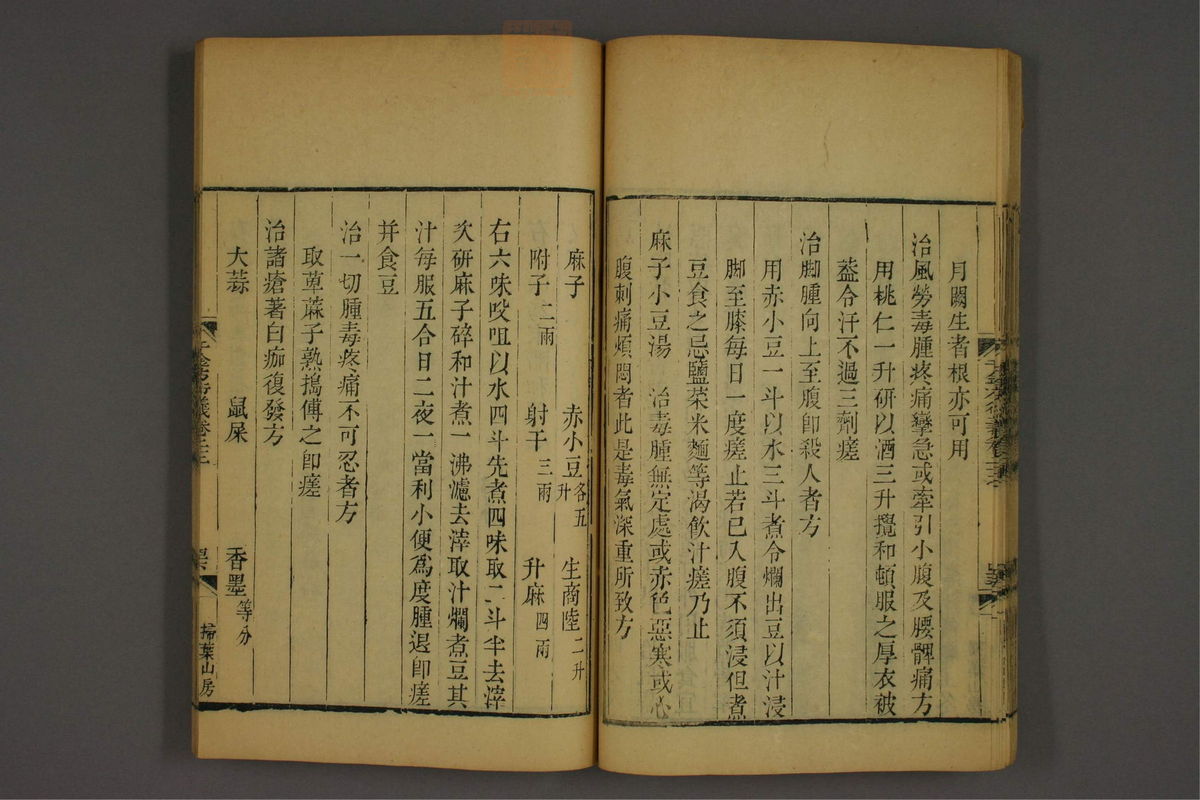 月闕生者根亦可用
治風勞毒腫疼痛攣急或牽引小腹及腰髀痛方
用桃仁一升研以酒三升攪和頓服之厚衣被
蓋令汗不過三劑瘥
治脚腫向上至腹卽殺人者方
用赤小豆一斗以水三斗煮令爛出豆以汁浸
脚至膝每日一度瘥止若已入腹不須浸但煮
豆食之忌鹽菜米麵等渴飮汁瘥乃止
麻子小豆湯　治毒腫無定處或赤色惡寒或心
腹刺痛煩悶者此是毒氣深重所致方
麻子　赤小豆各五升　生商陸二升
附子二兩　射干三兩　升麻四兩
右六味㕮咀以水四斗先煮四味取二斗半去滓
次研麻子碎和汁煮一沸濾去滓取汁爛煮豆其
汁每服五合日二夜一當利小便爲度腫退卽瘥
幷食豆
治一切腫毒疼痛不可忍者方
取萆蔴子熟搗傅之卽瘥
治諸瘡著白痂復發方
大蒜　鼠屎　香墨等分
掃葉山房